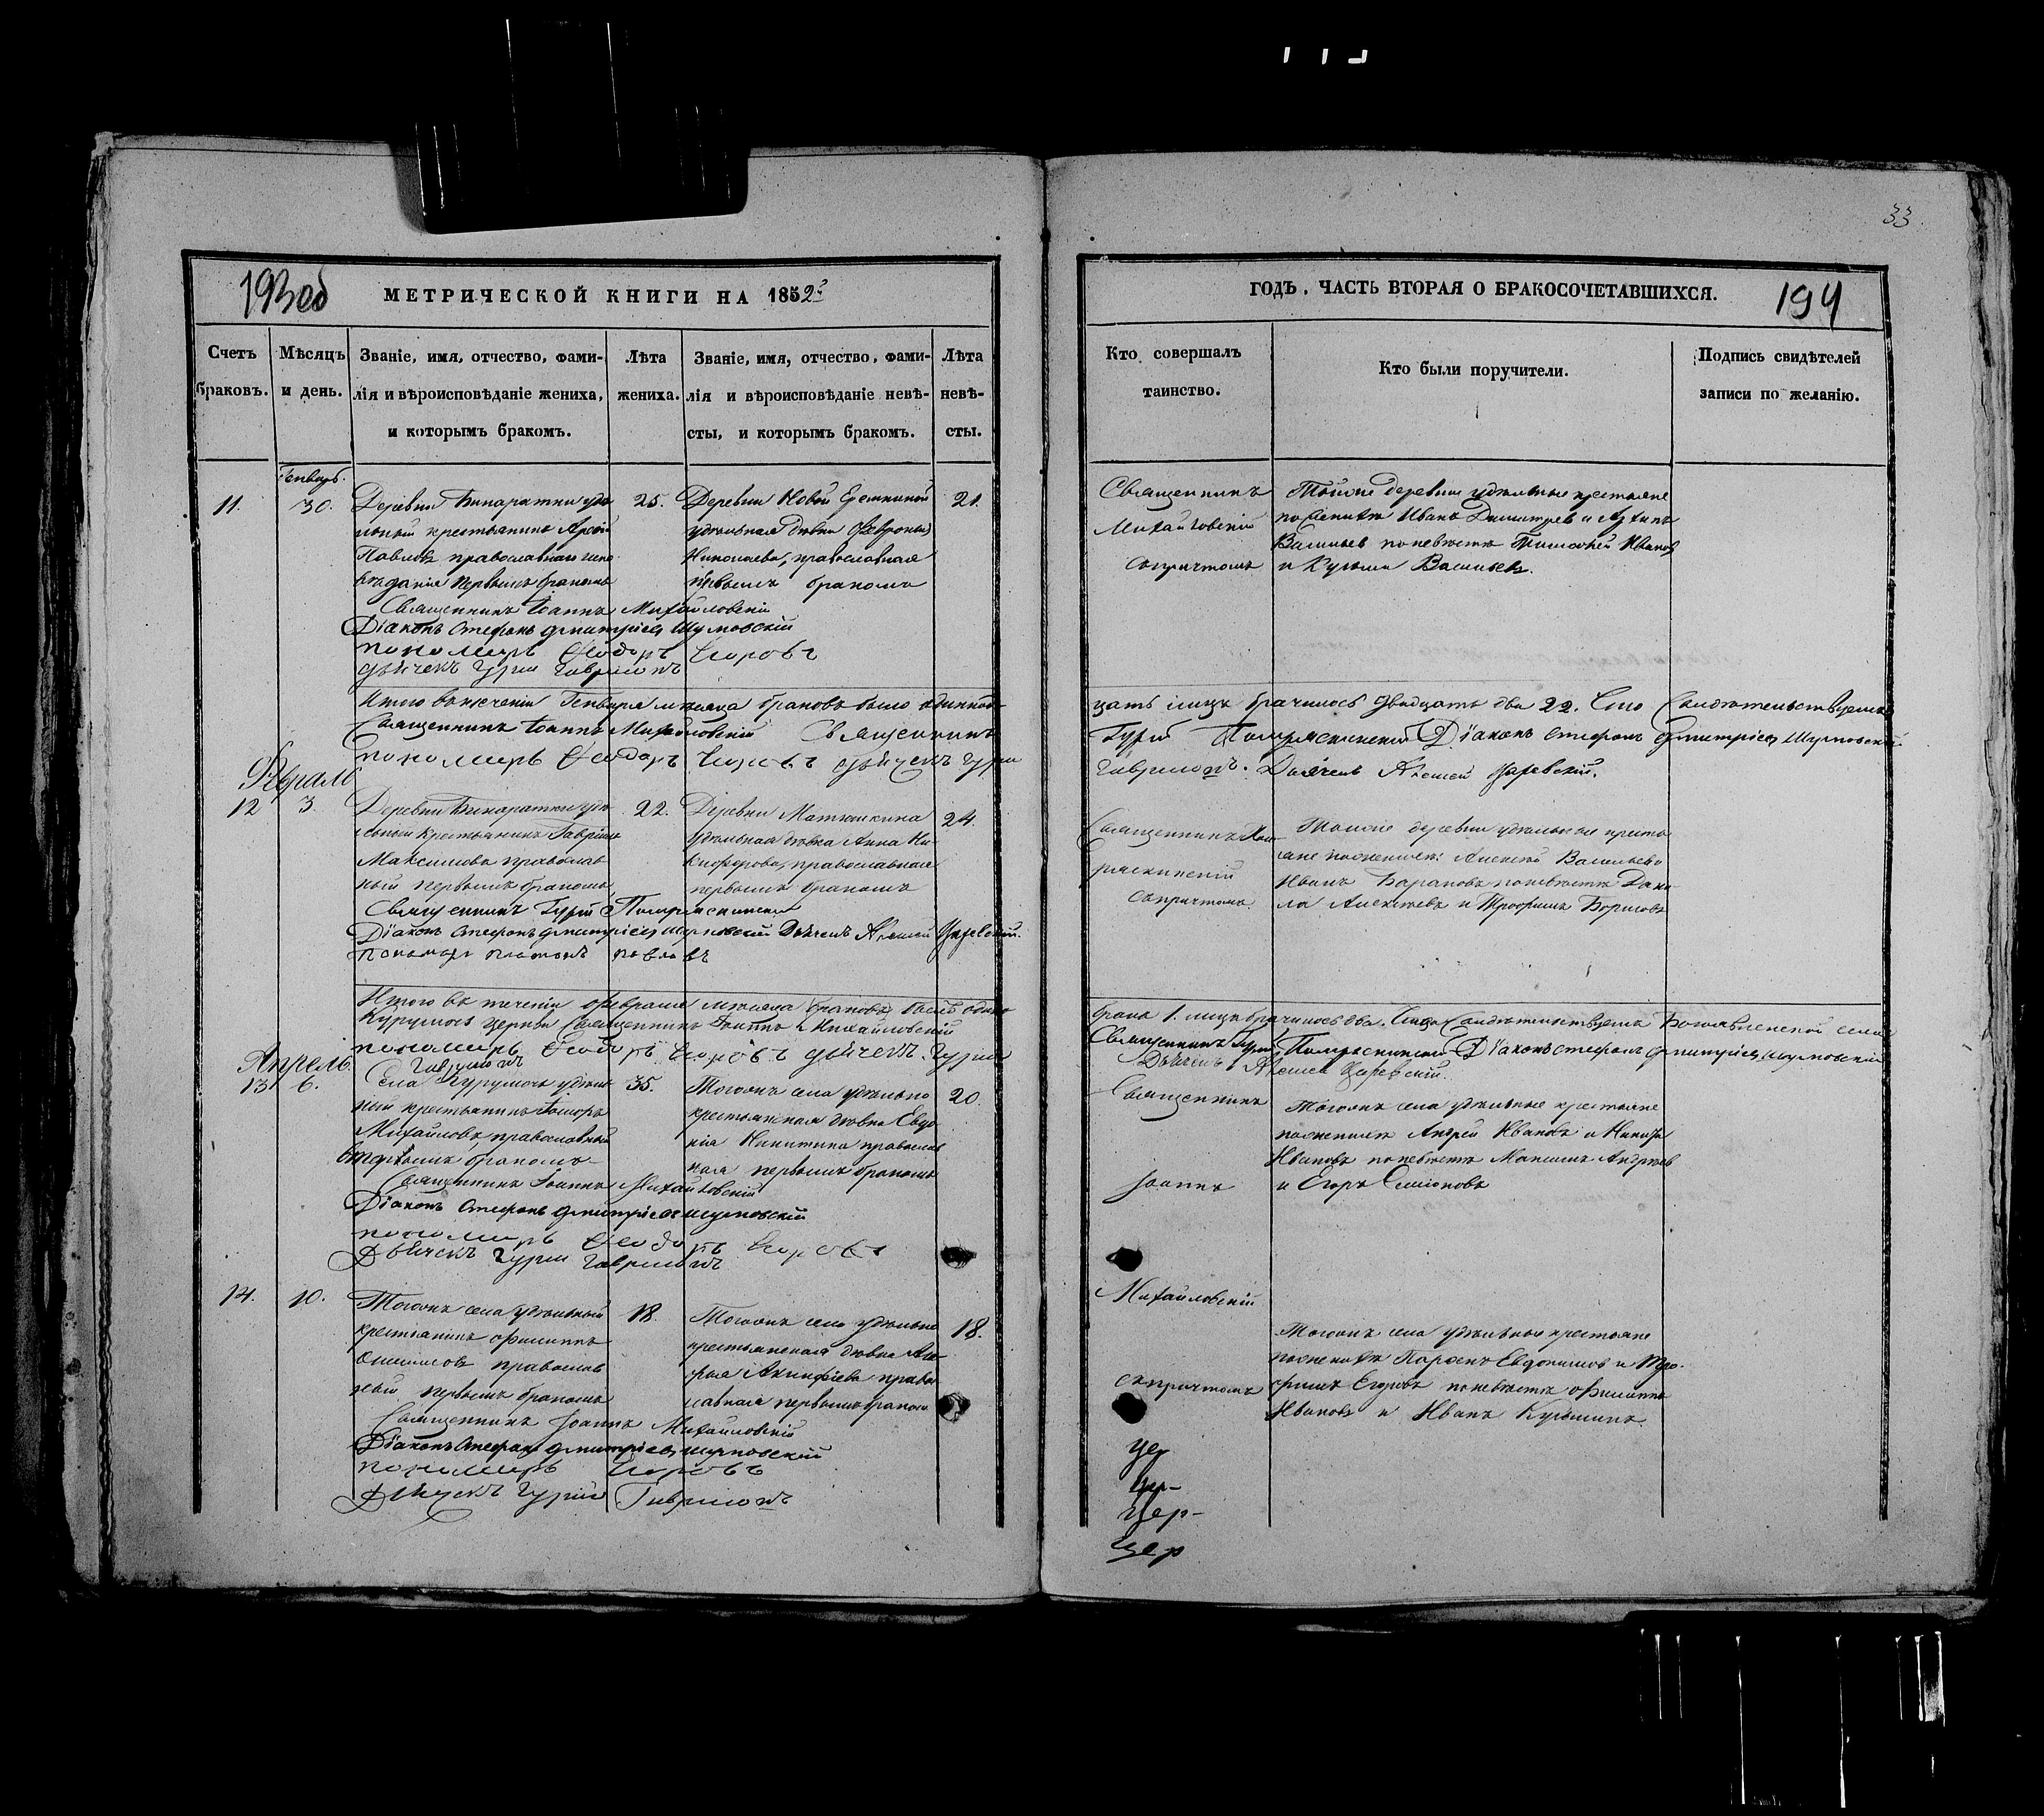 33.
193 об
МЕТРИЧЕСКОЙ КНИГИ НА 1852й
ГОДЪ. ЧАСТЬ ВТОРАЯ О БРАКОСОЧЕТАВШИХСЯ.
194
Счетъ браковъ.
Мѣсяцъ и день.
Званіе, имя, отчество, фами-
лія и вѣроисповѣданіе жениха,
и которымъ бракомъ.
Лѣта
жениха.
Званіе, имя, отчество, фами-
лія и вѣроисповѣданіе невѣ-
сты, и которымъ бракомъ.
Лѣта
невѣ-
сты.
Кто совершалъ
таинство.
Кто были поручители.
Подпись свидѣтелей
записи по желанію.
Генварь.
11.
30.
Деревни Бинаратки удѣ
льный крестьянинъ
Павловъ православнаго испо
вѣданія первымъ бракомъ
25.
Деревни Новой Еремкиной
удѣльная дѣвка Февронья
Николаева, православная
первымъ бракомъ
21.
Священникъ
Михайловскій
съ причтомъ
Тойже деревни удѣльные крестьяне
по женихѣ Иванъ Димитріев и
Васильев по невѣстѣ Тимофей Иванов
и Кузьма Васильевъ.
Священникъ Іоаннъ Михайловскій
Діаконъ Стефанъ Дмитріев Шумовскій
пономарь Феодоръ Егоровъ
дьячекъ Гурій Гавриловъ
Итого въ теченіи Генваря мѣсяца браковъ было одиннад
цать лицъ брачилось двадцать два 22. Сіе свидѣтельствуемъ
Священникъ Іоаннъ Михайловскій Священникъ
Гурій Діаконъ Стефанъ Дмитріев Шумовскій
пономарь Феодоръ Егоровъ дьячекъ Гурій
Гавриловъ. Дьячекъ Алексей Царевскій.
Февраль
12
3.
Деревни Бинаратки удѣ
льный крестьянинъ Гаврила
Максимовъ православ
ный первымъ бракомъ
22.
Деревни Матюшкина
удѣльная дѣвка Анна Ни
кифорова, православная
первымъ бракомъ
24.
Священникъ
съ причтомъ
Тойже деревни удѣльные кресть
яне по женихѣ: Алексѣй Васильевъ
Иванъ Барановъ по невѣстѣ Дани
ла Алексѣевъ и Трофимъ Борисовъ
Священникъ Гурій
Діаконъ Стефанъ Дмитріев Шумовскій Дьячекъ Алексей Царевскій.
Пономарь Платонъ Павловъ
Итого въ теченіи Февраля мѣсяца браковъ былъ одинъ
бракъ 1. лицъ брачилось два. Сіе свидѣтельствуемъ Богоявленской села
Курумоча церкви Священникъ Іоаннъ Михайловскій
Священникъ Гурій Діаконъ Стефанъ Дмитріев Шумовскій
пономарь Феодоръ Егоровъ дьячекъ Гурій
Гавриловъ
Дьячекъ Алексей Царевскій.
Апрель.
13
6.
Села Курумоча удѣль
ный крестьянинъ
Михайловъ, православный
вторымъ бракомъ
35.
Тогожъ села удѣльно
крестьянская дѣвка Евдо
кіа Никитина православ
ная первымъ бракомъ
20.
Священникъ
Іоаннъ
Тогожъ села удѣльные крестьяне
по женихѣ Андрей Ивановъ и Никита
Ивановъ по невѣстѣ Максимъ Андрѣев
и Егоръ Симіоновъ
Священникъ Іоаннъ Михайловскій
Діаконъ Стефанъ Дмитріев Шумовскій
пономарь Феодоръ Егоровъ
Дьячекъ Гурій Гавриловъ
14.
10.
Тогожъ села удѣльный
крестьянинъ Филиппъ
православ
ный первымъ бракомъ
18.
Тогожъ села удѣльно
крестьянская дѣвка
Акинфіева право
славная первымъ бракомъ
18.
Михайловскій
съ причтомъ
Тогожъ села удѣльные крестьяне
по женихѣ Евдокимов и Тро-
фимъ Егоровъ по невѣстѣ Филиппъ
Ивановъ и Иванъ Кузьминъ
Священникъ Іоаннъ Михайловскій
Діаконъ Стефанъ Дмитріев Шумовскій
пономарь Егоровъ
Дьячекъ Гурій Гавриловъ
Цер
Цер-
Цер-
Цер